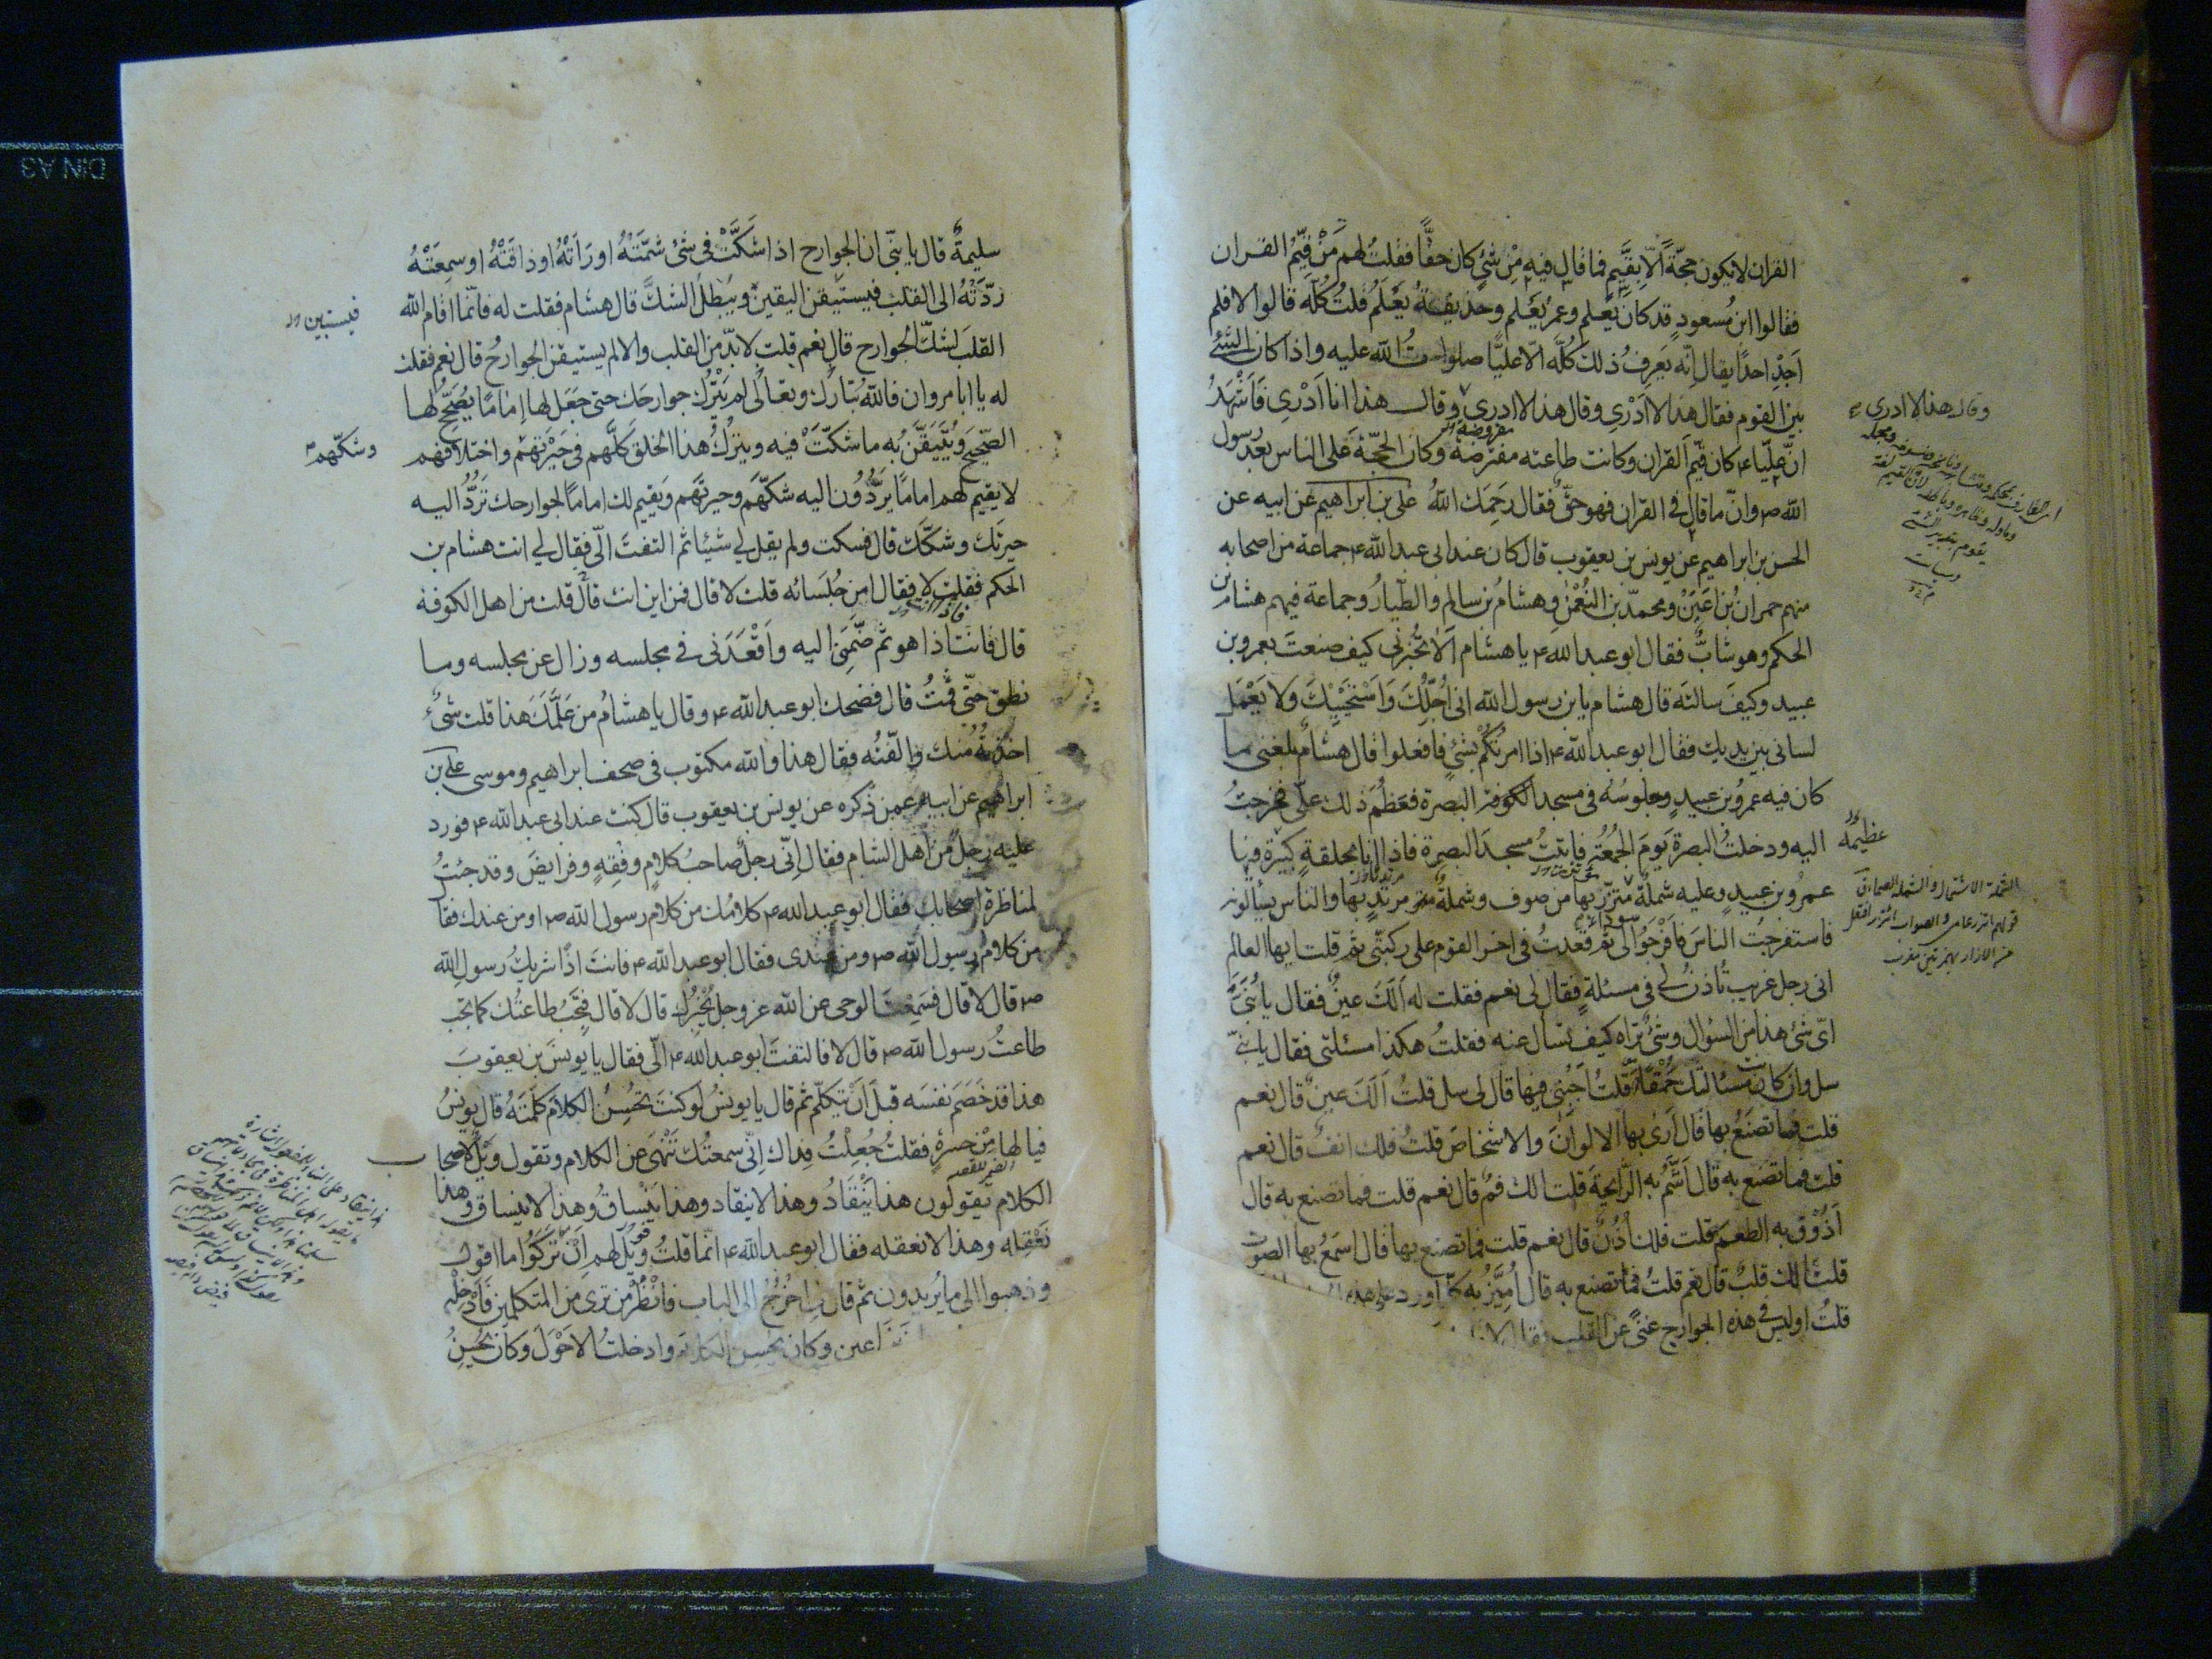 القران لا يكون حجّةً الّا بقيّم فما قال فيه مِنْ شئٍ كان حقًّا فقلتُ لهم مَنْ قيّمُ القران
فقالوا ابن مُسعودٍ قد كان يَعلم وعمر يَعْلم وحذيفةُ يَعْلَمُ قلتُ كُلّه قالوا لا فلم
اَجِدْ احدًا يقال اِنّه يَعرِفُ ذلك كُلَّه الّا عليًّا صلوات الله عليه واذا كان الشئ
بين القوم فقال هذا لا اَدْرِي وقال هذا لا ادرى وقال هذا انا اَدْرِي فَاَشْهَدُ
وقال هذا لا ادرى
انّ عليّا ع كان قيّم القران وكانت طاعته مفترضة وكان الحجّة عَلَى الناس بعد رسول
مفروضة
الله ص وانّ ما قال في القران فهو حقّ فقال رَحِمَك اللهُ علي بن ابراهيم عن ابيه عن
الحسن بن ابراهيم عن يونس بن يعقوب قال كان عند ابى عبد الله ع جماعة من اصحابه
منهم حمران بْن اَعيَنْ ومحمّد بن النُّعْمٰن وهشام بْن سالمٍ والطّيّارُ وجماعة فيهم هشام بن
الحكم وهو شابٌّ فقال ابو عبد الله ع يا هشام اَلَا تُخْبِرُنى كيف صنعتَ بعمرو بن
عبيد وكيفَ سالتَه قال هشام يا بن رسول الله انى اُجِلُّكَ وَاَسْتَحْيِيْكَ ولا يَعْمَل
لسانى بين يديك فقال ابو عبد الله ع اذا امرتُكُمْ بشئٍ فافعلوا قال هشام بلغنى ما
كان فيه عمرُو بن عبيدٍ وجلوسُهُ فى مسجد البصرة فعَظُمَ ذلك علَىّ فخرجتُ
اليه ودخلتُ البصرة يَومَ الجُمُعَةِ فاتيتُ مسجدَ البصرة فاذا انا بحلقةٍ كبيرة فيها
عظيمة
عمرُو بن عبيدٍ وعليه شملةٌ متّزر بها من صوف وشملةٌ مرتدٍ بها والناس يسألونه
فاستفرجتُ الناسَ فَافْرَجَوُا لى ثمّ قعدتُ فى اخر القوم على ركبتَىَّ ثم قلت ايها العالم
انى رجل غريب تَأذن لى فى مسئلةٍ فقال لى نعم فقلت له اَلَكَ عينٌ فقال يا بُنَىَّ
اىّ شئ هذا من السُؤال وشئٌ تراه كيف تسال عنه فقلتُ هكذا مسئلتى فقال يا بُنَىّ
سل وان كان مسئالتك حَمْقَاءَ قلتُ اَجِبْنِى فيها قال لى سل قلتُ اَلَكَ عينٌ قال نعم
قلت فما تصنَعُ بها قال اَرَى بها الالوانَ والاشخاصَ قلتُ فلك انفٌ قال نعم
قلت فما تصنع به قال اَشَّمُ به الرّايحةَ قلت الك فمٌ قال نعم قلت فما تصنع به قال
اَذُوْق به الطعمَ قلت فلك اُذُنٌ قال نعم قلت فما تصنع بها قال اسمَعُ بها الصوت
قلت الك قلبٌ قال نعم قلتُ فما تصنع به قال اُمَيِّزُ به كلّما ورد على هذه
قلتُ اوليس في هذه الجوارح غنًى عن القلب فقال لا
سليمةٌ قال يا بنّى ان الجوارح اذا شكَّتْ فى شئ شَمَّتْهُ او رَاَتْهُ او ذاقَتْهُ او سمِعَتْهُ
ردّتْهُ الى القلب فيستيقن اليقين ويُبْطِلُ الشكَّ قال هشام فقلت له فانّما اقام الله
فيستبين
القلبَ لشكّ الجوارح قال نعم قلت لابدّ من القلب والا لم يستيقن الجوارحُ قال نعم فقلت
له يا ابا مروان فالله تبارك وتعالى لم يَتْرُك جوارحَك حتى جَعَل لها اِمامًا يُصَحِّحُ لها
الصّحيحَ ويُتيَقَّنُ به ما شكّتْ فيه ويترُك هذا الخلق كلَّهم فى حَيْرَتِهِمْ واختلافهم
وشكّهم
لا يقيم لهم امامًا يَردُّوُن اليه شكّهَم وحيرتَهَم ويَقيم لك امامًا لجوارحك تَرُدُّ اليه
حيرتَك وشكّكَ قال فسكت ولم يقل لي شيئا ثم التفتَ الىّ فقال لي انت هشام بن
الحكم فقلت لا فقال امن جُلَسَائه قلت لا قال فمن اين انت قال قلت من اهل الكوفة
قال فانت اذا هو ثم ضَمَّنِى اليه وَاَقْعَدَنى فى مجلسه وزال عن مجلسه وما
نطق حتّى قُمْتُ قال فضحك ابو عبد الله ع وقال يا هشامُ من عَلَّمَك هذا قلت شئٌ
اخذتُهُ منك والّفتُه فقال هذا والله مكتوب فى صحف ابراهيم وموسى علي بن
ابراهيم عن ابيه عمن ذكره عن يونس بن يعقوب قال كنت عند ابى عبد الله ع فورد
عليه رجلٌ من اَهل الشام فقال اِنّى رجل صاحبُ كلامٍ وفقهٍ وفرايضَ وقد جئتُ
لمناظرة اصحابك فقال ابو عبد الله ع كلامُك من كلام رسول الله ص او من عندك فقال
من كلام رسول الله ص ومن عندى فقال ابو عبد الله ع فانتَ اذًا شريكُ رسولِ الله
ص قال لا قال فسَمِعْتَ الوحى عن الله عز وجل يُخْبِرُك قال لا قال فتَجِبُ طاعتُك كما تجب
طاعتُ رسول الله ص قال لا فالتفتَ ابو عبد الله ع الىّ فقال يا يونسَ بن يعقوبَ
هذا قد خَصَمَ نفسَه قبلَ اَنْ يتكلّم ثم قال يا يونسُ لو كنتَ تُحْسِنُ الكلامَ كلّمتَهُ قال يونسُ
فيا لها مِنْ حسرةٍ فقلتُ جُعِلْتُ فداك اِنّى سمعتُك تَنْهَى عن الكلام وتقول وَيْلٌ لاصحاب
الكلام يقولون هذا يَنْقَادُ وهذا لا ينقاد وهذا يَنْسَاقُ وهذا لا ينساق وهذا
نَعْقِله وهذا لا نعقله فقال ابو عبد الله ع انّما قلتُ وَيْلٌ لهم اِنْ تركوا ما اقول
وذهبوا الى ما يُريدون ثم قال لى اخْرُجْ الى الباب فانْظُرْ من ترى من المتكلمين فَاَدْخِلْه
اعين وكان يحسن الكلام وادخلتُ الاحْوَلَ وكان يُحْسِنُ